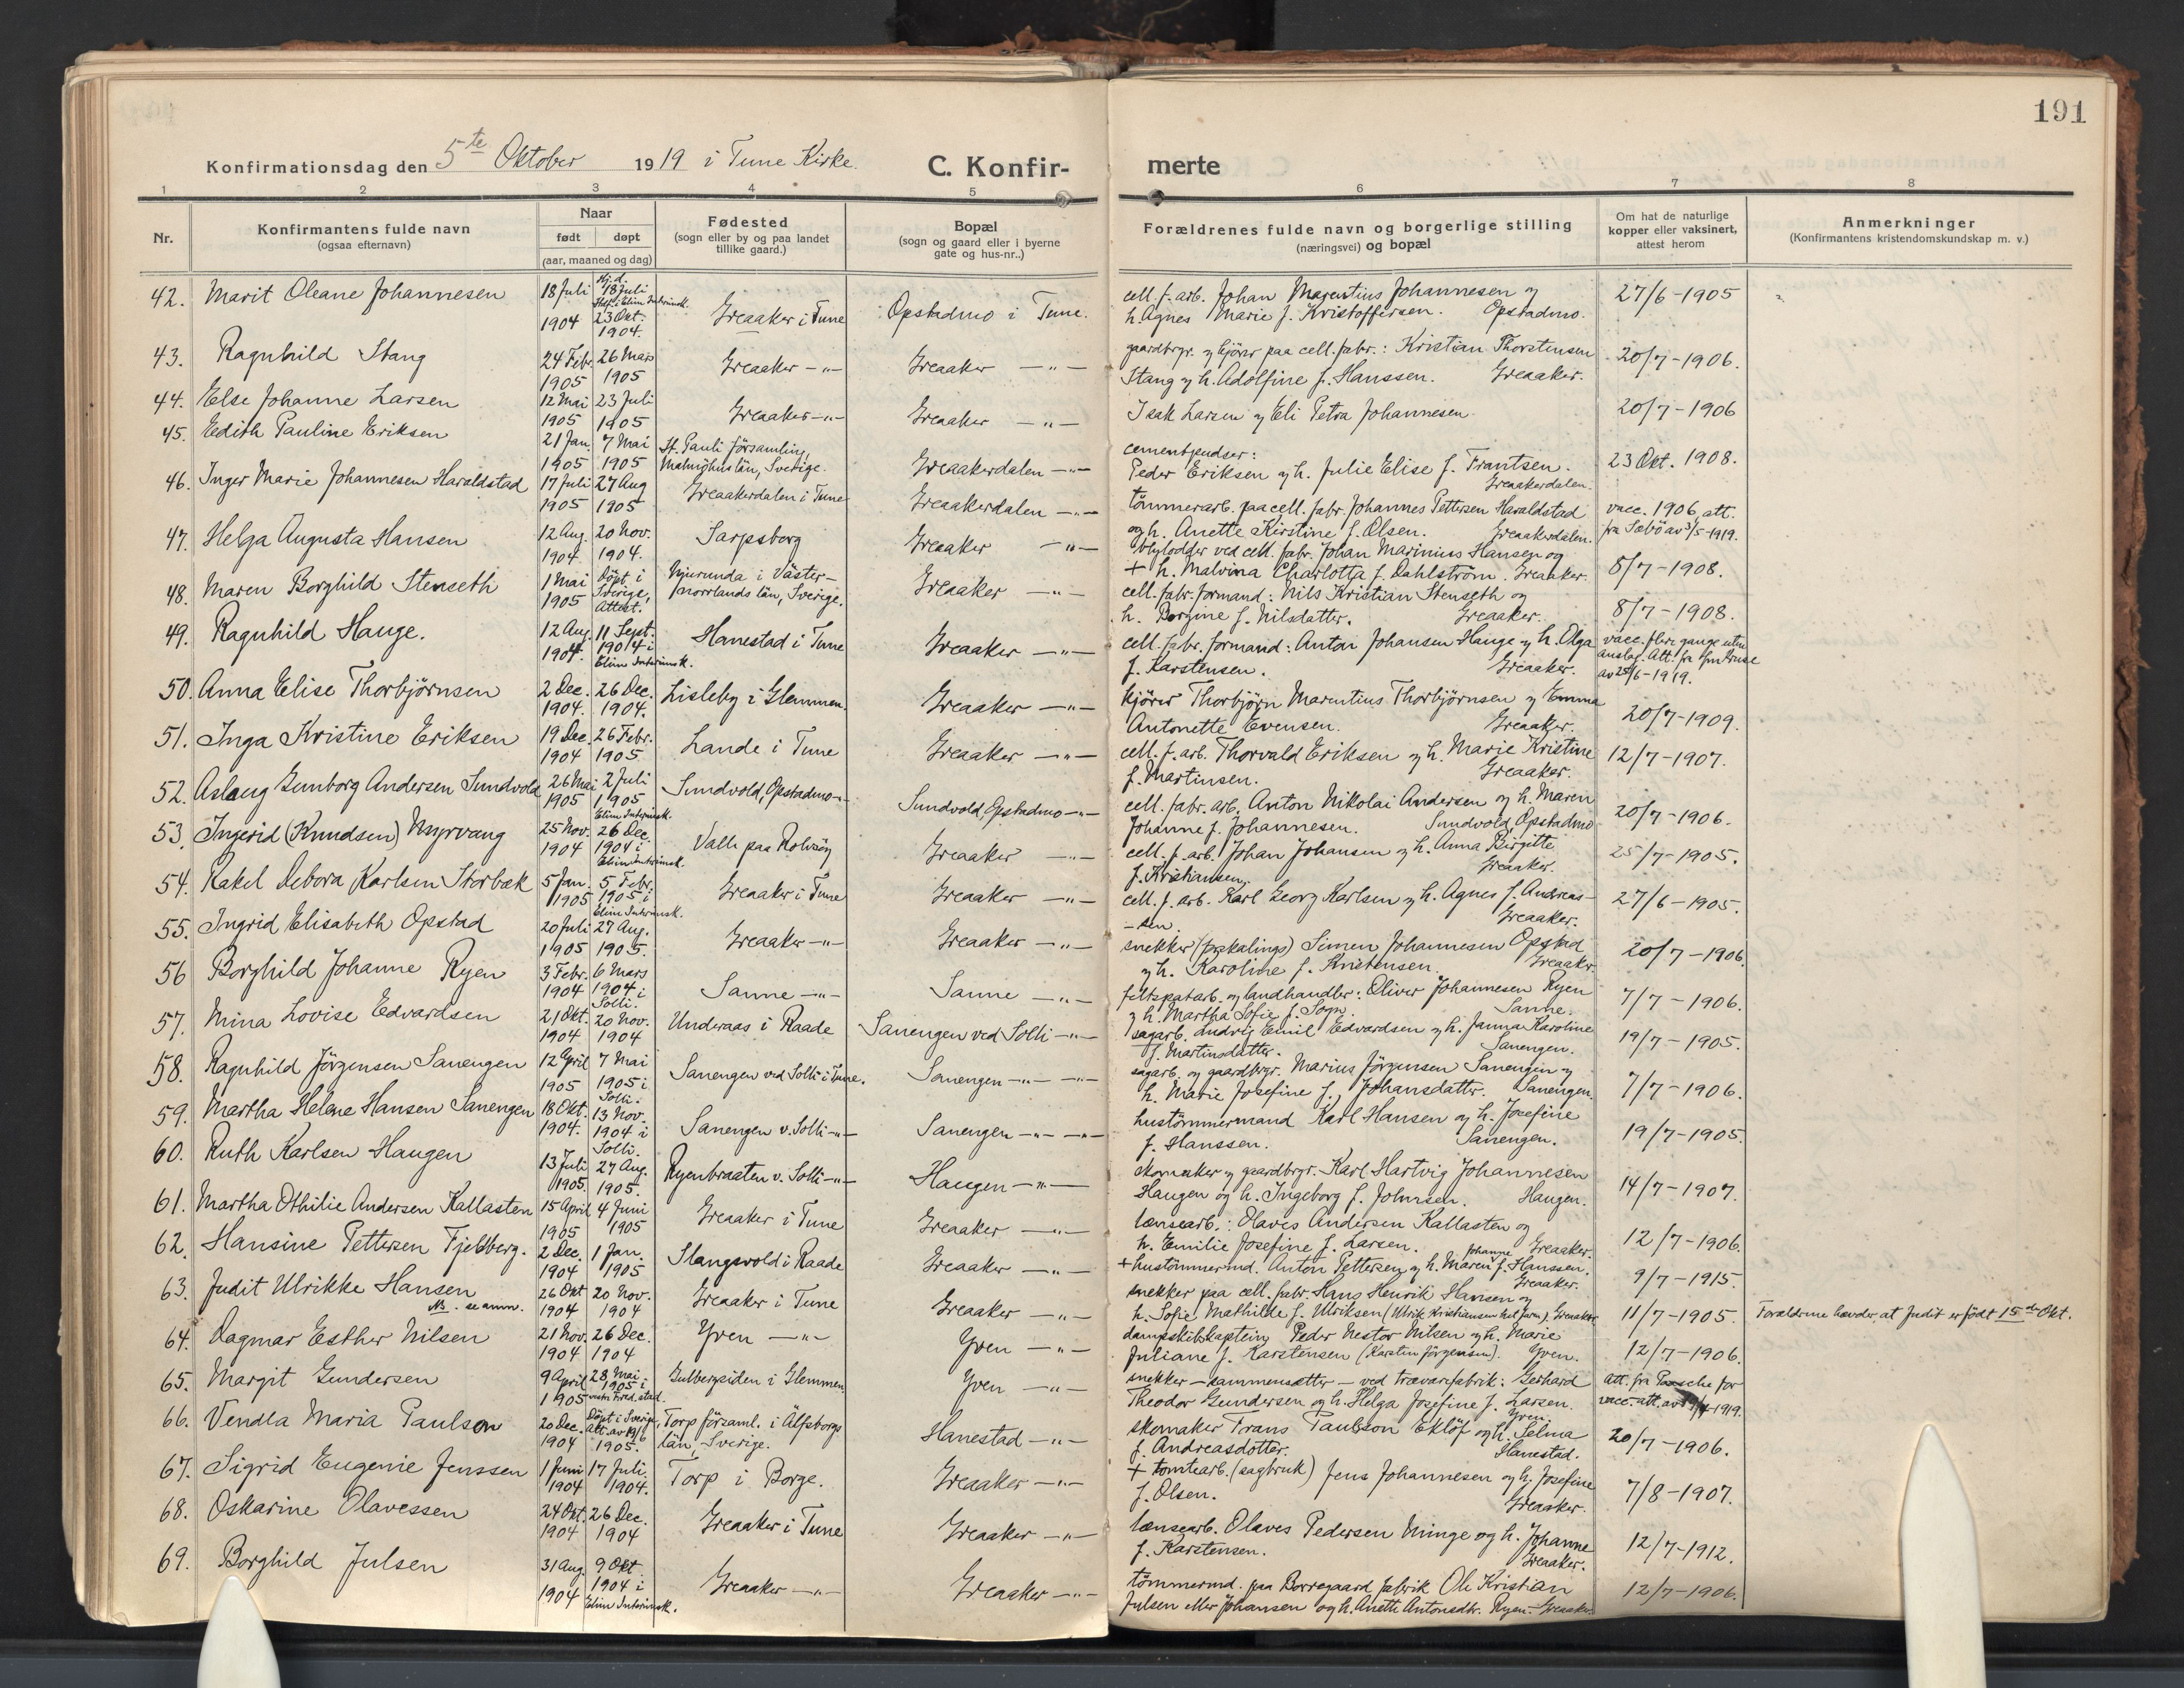 191
Konfirmationsdag den 5te Oktober 1919 i Tune Kirke. C. Konfir- merte
1 2 3 4 5 6 7 8
Nr.
Konfirmantens fulde navn
(ogsaa efternavn)
Naar
født døpt
(aar, maaned og dag)
Fødested
(sogn eller by og paa landet
tillike gaard.)
Bopæl
(sogn og gaard eller i byerne
gate og hus-nr..)
Forældrenes fulde navn og borgerlige stilling
(næringsvei) og bopæl
Om hat de naturlige
kopper eller vaksinert,
attest herom
Anmerkninger
(Konfirmantens kristendomskundskap m. v.)
42. Marit Oleane Johannesen
18 Juli 1904
Hj.d. 18 Juli Stadf. i Elim Interimsk. 23 Okt. 1904.
Greaaker i Tune
Opstadmo i Tune.
cell. f. arb. Johan Marentius Johannesen og
h. Agnes Marie f. Kristoffersen. Opstadmo.
27/6-1905
43. Ragnhild Stang
24 Febr. 1905
26 Mars 1905
Greaaker -"-
Greaaker -"-
gaardbrgr. og kjører paa cell. fabr.: Kristian Thorstensen
Stang og h. Adolfine f. Hanssen. Greaaker.
20/7-1906.
44. Else Johanne Larsen
12 Mai 1905
23 Juli 1905
Greaaker -"-
Greaaker -"-
Isak Larsen og Eli Petra Johannesen
20/7-1906
45. Edith Pauline Eriksen
21 Jan. 1905
7 Mai 1905
St. Pauli församling,
Malmöhus län, Sverige.
Greaakerdalen -"-
cementpudser:
Peder Eriksen og h. Julie Elise f. Frantsen.
Greaakerdalen.
23 Okt. 1908.
46. Inger Marie Johannesen Haraldstad
17 Juli 1905
27 Aug 1905
Greaakerdalen i Tune
Greaakerdalen -"-
tömmerarb. paa cell. fabr. Johannes Pettersen Haraldstad
og h. Anette Kirstine f. Olsen. Greaakerdalen.
vacc. 1906, att.
fra Sæbö av 3/5-1919.
47. Helga Augusta Hansen
12 Aug. 1904
20 Nov. 1904.
Sarpsborg
Greaaker -"-
blylodder ved cell. fabr. Johan Marinius Hansen og
+ h. Malvina Charlotta f. Dahlström. Greaaker.
8/7-1908.
48. Maren Borghild Stenseth
1 Mai 1905
Döpt i Sverige, Attest.
Njurunda i Väster-
norrlands län, Sverige.
Greaaker -"-
cell. fabr. formand: Nils Kristian Stenseth og
h. Borgine f. Nilsdatter. Greaaker.
8/7-1908.
49. Ragnhild Hauge.
12 Aug. 1904.
11 Sept. 1904 i Elim Interimsk.
Hanestad i Tune
Greaaker -"-
cell. fabr. formand: Anton Johansen Hauge og h. Olga
f. Karstensen. Greaaker.
vacc. flere gange uten
anslag. Att. fra
av 25/6-1919.
50. Anna Elise Thorbjørnsen
2 Dec. 1904.
26 Dec. 1904.
Lisleby i Glemmen.
Greaaker -"-
kjörer Thorbjörn Marentius Thorbjörnsen og Emma
Antonette Evensen. Greaaker.
20/7-1909.
51. Inga Kristine Eriksen
19 Dec. 1904
26 Febr. 1905
Lande i Tune
Greaaker -"-
cell. f. arb. Thorvald Eriksen og h. Marie Kristine
f. Martinsen. Greaaker.
12/7-1907.
52. Aslaug Gunborg Andersen Sundvold
26 Mai 1905
2 Juli 1905 Elim Interimsk.
Sundvold, Opstadmo -"-
Sundvold, Opstadmo -"-
cell. fabr. arb. Anton Nikolai Andersen og h. Maren
Johanne f. Johannesen. Sundvold, Opstadmo
20/7-1906.
53. Ingerid (Knudsen) Myrvang
25 Nov. 1904
26 Dec. 1904 i Elim Interimsk.
Valle paa Rolvsøy
Greaaker -"-
cell. f. arb. Johan Johansen og h. Anna Birgitte
f. Kristiansen. Greaaker.
25/7-1905.
54. Rakel Debora Karlsen Storbæk
5 Jan. 1905
5 Febr. 1905 i Elim Interimsk.
Greaaker i Tune
Greaaker -"-
cell. f. arb. Karl Georg Karlsen og h. Agnes f. Andreas-
-sen. Greaaker.
27/6-1905.
55. Ingrid Elisabeth Opstad
20 Juli 1905
27 Aug. 1905.
Greaaker -"-
Greaaker -"-
snekker (forskalings) Simen Johannesen Opstad
og h. Karoline f. Kristensen. Greaaker.
20/7-1906.
56 Borghild Johanne Ryen
3 Febr. 1904
6 Mars 1904 i Solli.
Sanne -"-
Sanne -"-
feltspatarb. og landhandler: Oliver Johannesen Ryen
og h. Martha Sofie f. Sogn. Sanne.
7/7-1906.
57. Mina Lovise Edvardsen
21 Okt. 1904
20 Nov. 1904
Underaas i Raade
Sanengen ved Solli -"-
sagarb. Ludvig Emil Edvardsen og h. Janna Karoline
f. Martinsdatter. Sanengen.
19/7-1905.
58. Ragnhild Jörgensen Sanengen
12 April 1905
7 Mai 1905 i Solli.
Sanengen ved Solli i Tune.
Sanengen -"- -"-
sagarb. og gaardbrgr. Marius Jörgensen Sanengen og
h. Marie Josefine f. Johansdatter. Sanengen.
7/7-1906.
59. Martha Helene Hansen Sanengen
18 Okt. 1904.
13 Nov. 1904 i Solli.
Sanengen v. Solli -"-
Sanengen -"- -"-
hustömmermand Karl Hansen og h. Josefine
f. Hanssen. Sanengen.
19/7-1905.
60. Ruth Karlsen Haugen
13 Juli 1905.
27 Aug. 1905.
Ryenbraaten v. Solli -"-
Haugen -"-
skomaker og gaardbrgr. Karl Hartvig Johannesen
Haugen og h. Ingeborg f. Johnsen. Haugen.
14/7-1907.
61. Martha Othilie Andersen Kallasten
15 April 1905
4 Juni 1905
Greaaker i Tune
Greaaker -"-
lænsearb.: Olaves Andersen Kallasten og
h. Emilie Josefine f. Larsen. Greaaker.
12/7-1906.
62. Hansine Pettersen Fjeldberg.
2 Dec. 1904
1 Jan. 1905
Slangsvold i Raade
Greaaker -"-
+ hustömmermd. Anton Pettersen og h. Maren Johanne f. Hanssen.
Greaaker.
9/7-1915.
63. Judit Ulrikke Hansen
NB. se anm.
26 Okt 1904
20 Nov. 1904
Greaaker i Tune
Greaaker -"-
snekker paa cell. fabr. Hans Henrik Hansen og
h. Sofie Mathilde f. Ulriksen (Ulrik Kristiansen het faren). Greaaker
11/7-1905.
Forældrene hævder, at Judit er födt 15de Okt.
64. Dagmar Esther Nilsen
21 Nov. 1904
26 Dec. 1904
Yven -"-
Yven -"-
dampskibskaptein Peder Nestor Nilsen og h. Marie
Juliane f. Karstensen (Karsten Jörgensen). Yven.
12/7-1906.
65. Margit Gundersen
9 April 1905
28 Mai 1905 i vestre Fred.stad.
Gulbergsiden i Glemmen
Yven -"-
snekker - sammensætter - ved trævarefabrik: Gerhard
Theodor Gundersen og h. Helga Josefine f. Larsen.
Yven.
att. fra Paasche for
vacc. att. av 1919.
66. Vendla Maria Paulson
20 Dec. 1904
Döpt i Sverige, att. av 19/6 1905.
Torp församl. i Älfsborgs
län, Sverige.
Hanestad -"-
skomaker Frans Paulsson Eklöf og h. Selma
f. Andreasdotter. Hanestad.
20/7-1906.
67. Sigrid Eugenie Jenssen
1 Juni 1904
17 Juli. 1904.
Torp i Borge.
Greaaker -"-
+ tomtearb. (sagbruk) Jens Johannesen og h. Josefine
f. Olsen. Greaaker.
7/8-1907.
68. Oskarine Olavessen
24 Okt. 1904
26 Dec. 1904
Greaaker i Tune
Greaaker -"-
lænsearb. Olaves Pedersen Minge og h. Johanne
f. Karstensen. Greaaker.
12/7-1912.
69. Borghild Julsen
31 Aug. 1904
9 Okt. 1904 i Elim Interimsk.
Greaaker -"-
Greaaker -"-
tömmermd. paa Borregaard fabrik Ole Kristian
Julsen eller Johansen og h. Anette Antonsdtr. Ryen. Greaaker.
12/7-1906.